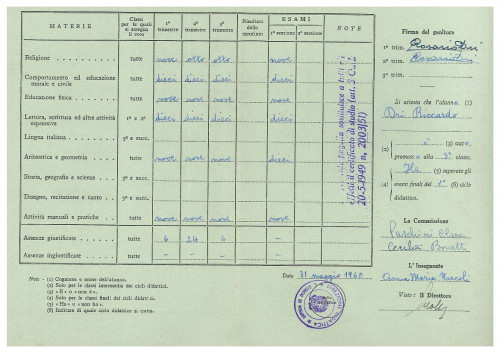 MATERIE
Classi per le quali si assegna il voto
1° trimestre
2° trimestre
3° trimestre
Risultato dello scrutinio
ESAMI
1ª sessione
2ª sessione
NOTE
Religione tutte nove otto otto nove
Comportamento ed educazione morale e civile tutte dieci dieci dieci dieci
Educazione fisica tutte nove nove nove nove
Lettura, scrittura ed altre attività espressive 1ª e 2ª dieci dieci dieci dieci
Lingua italiana 3ª e succ.
Aritmetica e geometria tutte nove nove dieci
Storia, geografia e scienze 3ª e succ.
Disegno, recitazione e canto 3ª e succ.
Attività manuali e pratiche tutte nove nove nove nove
Assenze giustificate tutte 6 24 6 -
Assenze ingiustificate tutte - - - -
effetti il certificato di studio (art.
20-5-1949 n. 2003/51)
Firma del genitore
1° trim.
2° trim.
3° trim.
Si attesta che l'alunno (1)
Riccardo
(2) è (3) stato
promosso alla 3ª classe.
(4) Ha (5) superato gli
esami finali del 1° (6) ciclo
didattico.
La Commissione
L'Insegnante
Anna Maria
Visto: Il Direttore
Data 31 maggio 1960
Note - (1) Cognome e nome dell'alunno.
(2) Solo per le classi intermedie dei cicli didattici.
(3) « È » o « non è ».
(4) Solo per le classi finali dei cicli didattici.
(5) « Ha » o « non ha ».
(6) Indicare di quale ciclo didattico si tratta.